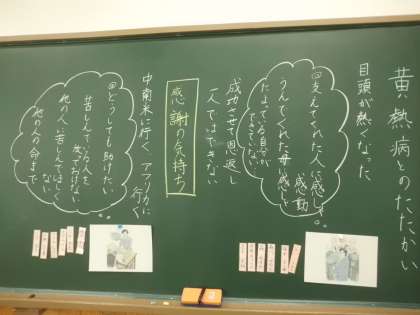 黄熱病とのたたかい
目頭が熱くなった
㋲支えてくれた人に感しゃ。
うんでくれた母に感しゃ
感動
たよってる自分が
できていない
成功させて恩返し
一人ではできない
感謝の気持ち
中南米に行く アフリカに行く
どうしても助けたい
苦しんでいる人を
放っておけない
他の人に苦しんでほしくない
他の人の命まで